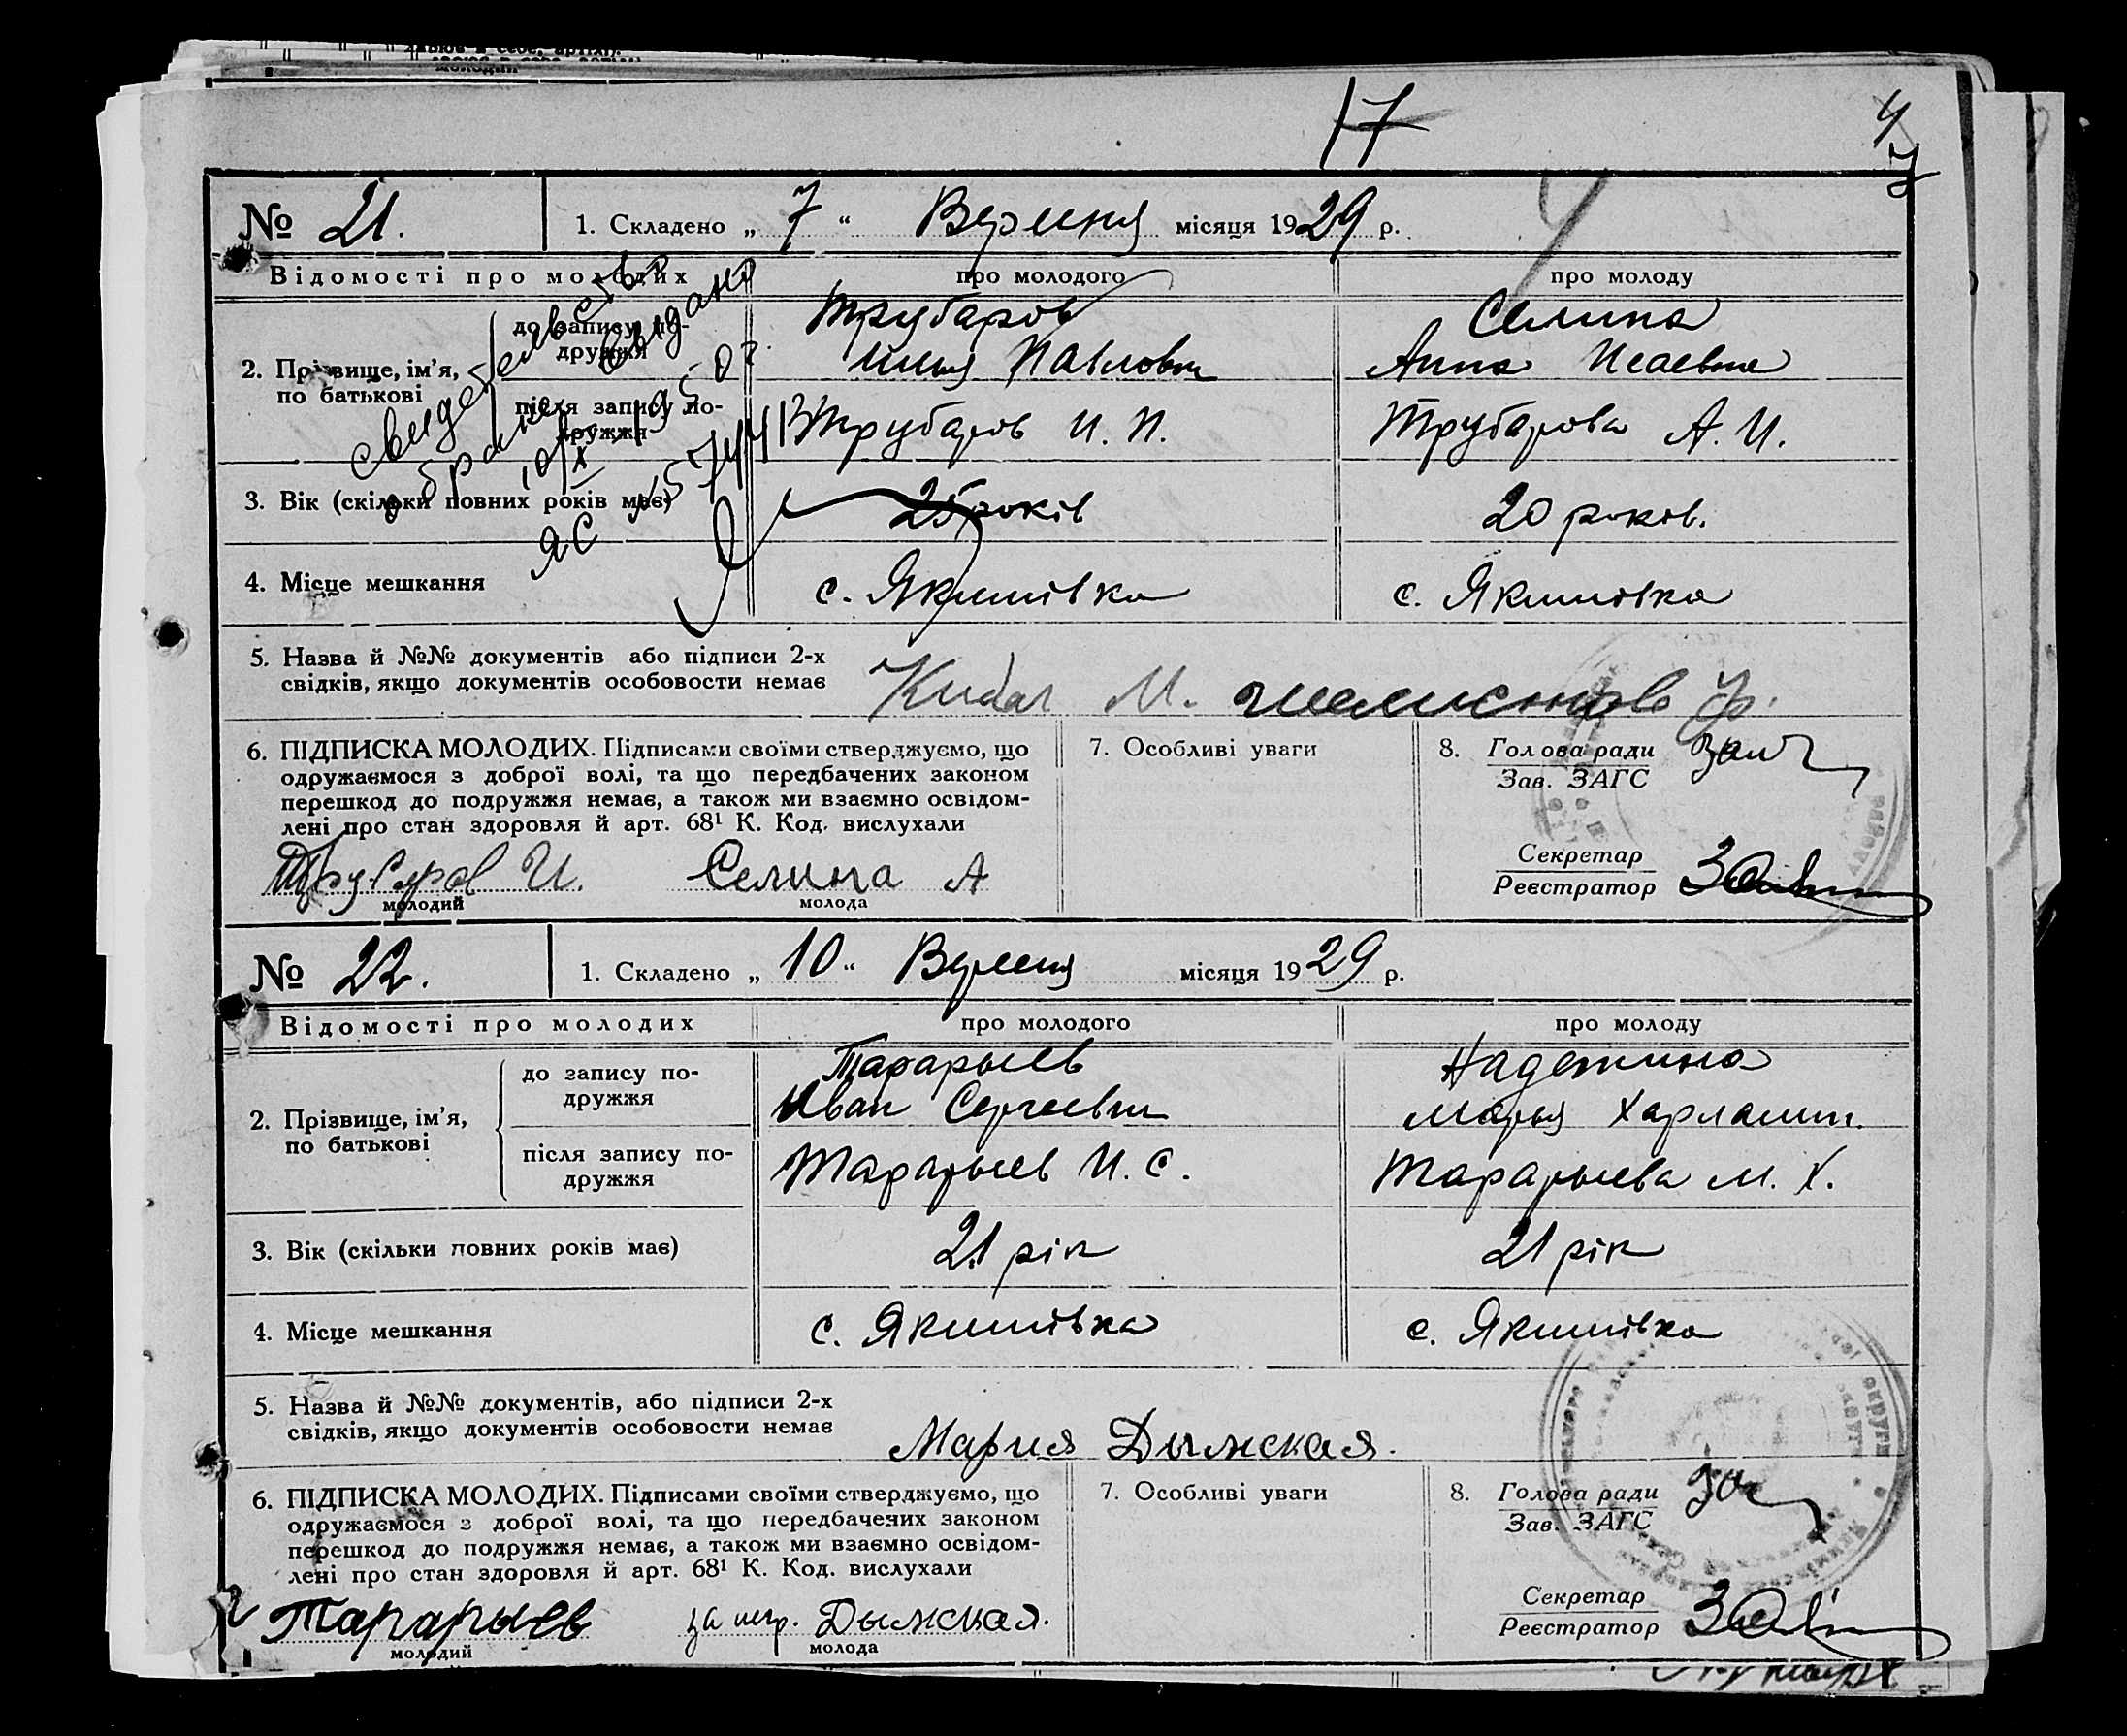 17
4
№ 21. 1. Складено „ 7 “ Вересня місяця 1929 р.
Відомості про молодих про молодого про молоду
2. Прізвище, ім’я, по батькові
до запису по-
дружжя
Трубаров
Илья Павлович
Селина
Анна Исаевна
після запису по-
дружжя
Трубаров И. П.
Трубарова А. И.
свидетельство
о браке выдано
10/X
ЯС
3. Вік (скільки повних років має) 25 років 20 років.
4. Місце мешкання с. Якимівка с. Якимовка
5. Назва й №№ документів або підписи 2-х
свідків, якщо документів особовости немає
М.
6. ПІДПИСКА МОЛОДИХ. Підписами своїми стверджуємо, що
одружаємося з доброї волі, та що передбачених законом
перешкод до подружжя немає, а також ми взаємно освідом-
лені про стан здоровля й арт. 68¹ К. Код. вислухали
Трубаров И. Селина А
молодий молода
7. Особливі уваги
8. Голова ради
Зав. ЗАГС
Секретар
Реєстратор
№ 22. 1. Складено „ 10 “ Вересня місяця 1929 р.
Відомості про молодих про молодого про молоду
2. Прізвище, ім’я,
по батькові
до запису по-
дружжя
Тарарыев
Иван Сергеевич
Надежина
Марья Харламп.
після запису по-
дружжя
Тарарыев И. С.
Тарарыева М. Х.
3. Вік (скільки повних років має) 21 рік 21 рік
4. Місце мешкання с. Якимівка с. Якимівка
5. Назва й №№ документів, або підписи 2-х
свідків, якщо документів особовости немає
Мария Дымская.
6. ПІДПИСКА МОЛОДИХ. Підписами своїми стверджуємо, що
одружаємося з доброї волі, та що передбачених законом
перешкод до подружжя немає, а також ми взаємно освідом-
лені про стан здоровля й арт. 68¹ К. Код. вислухали
Тарарыев за негр. Дымская.
молодий молода
7. Особливі уваги
8. Голова ради
Зав. ЗАГС
Секретар
Реєстратор